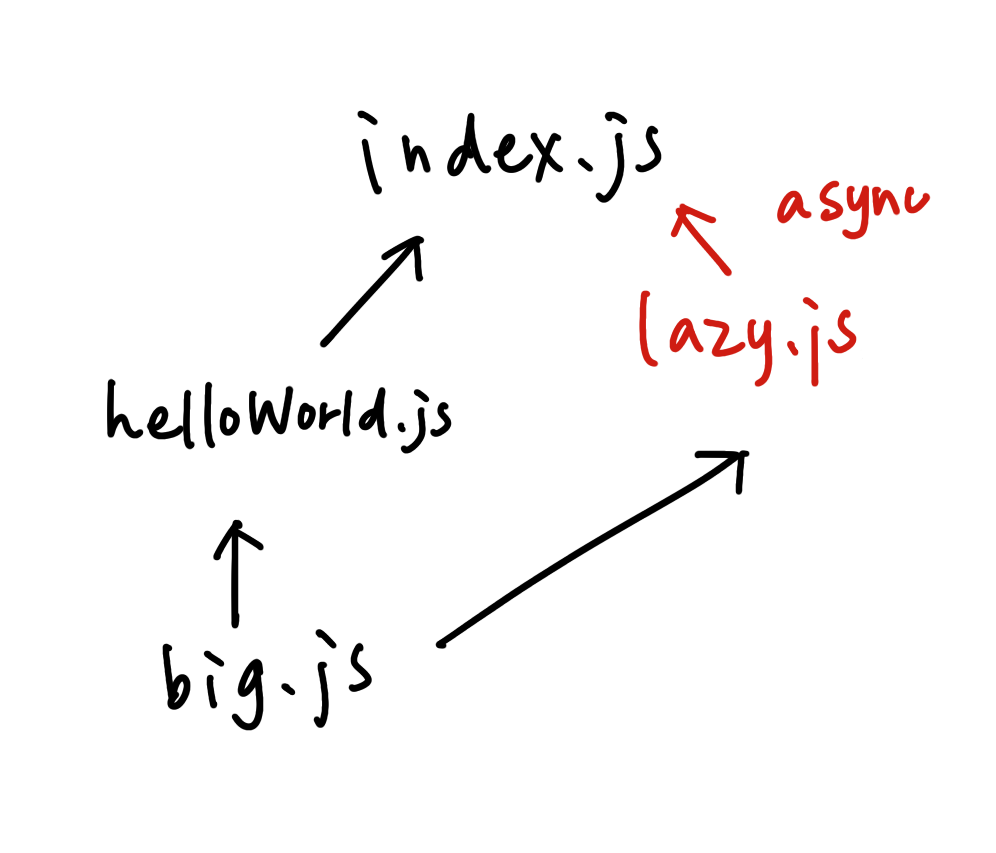 index.js
async
lazy.js
helloWorld.js
big.js